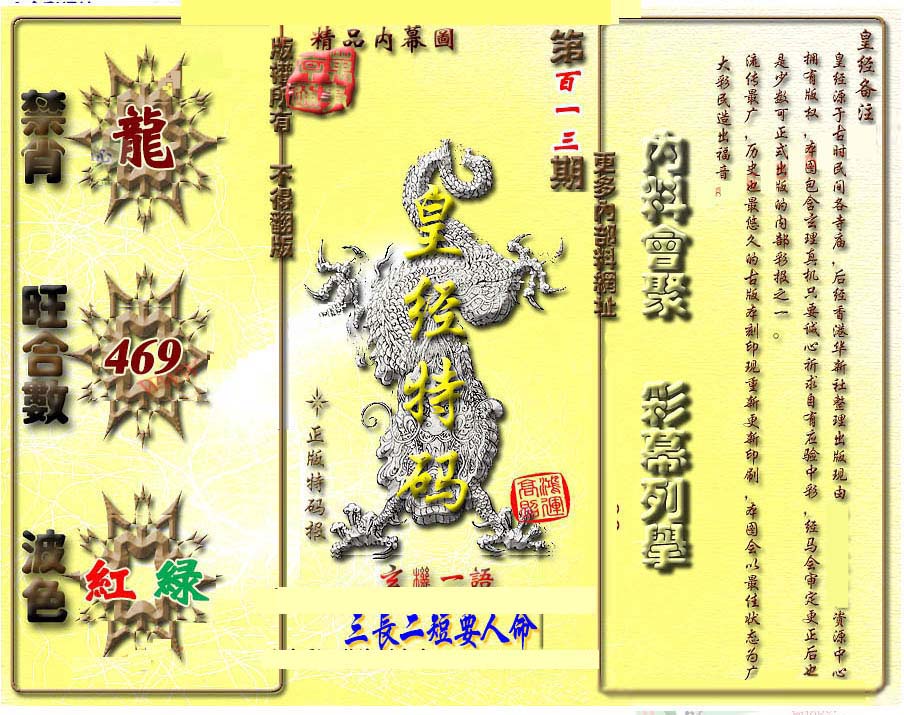 精品内幕圖
第百一三期
版權所有 不得翻版
更多内部料網址
禁肖
龍
旺合數
469
波色
紅 綠
皇经特码
正版特码报
鴻運
高照
玄機一語
三長二短要人命
内料會聚
彩幕列舉
皇经备注
皇经源于古时民间各寺庙,后经香港华新社整理出版现由 资源中心
拥有版权,本图包含玄理真机只要诚心祈求自有应验中彩,经马会审定更正后也
是少数可正式出版的内部彩报之一。
流传最广,历史也最悠久的古版本刻印现重新更新印刷,本图会以最佳状态为广
大彩民造出福音